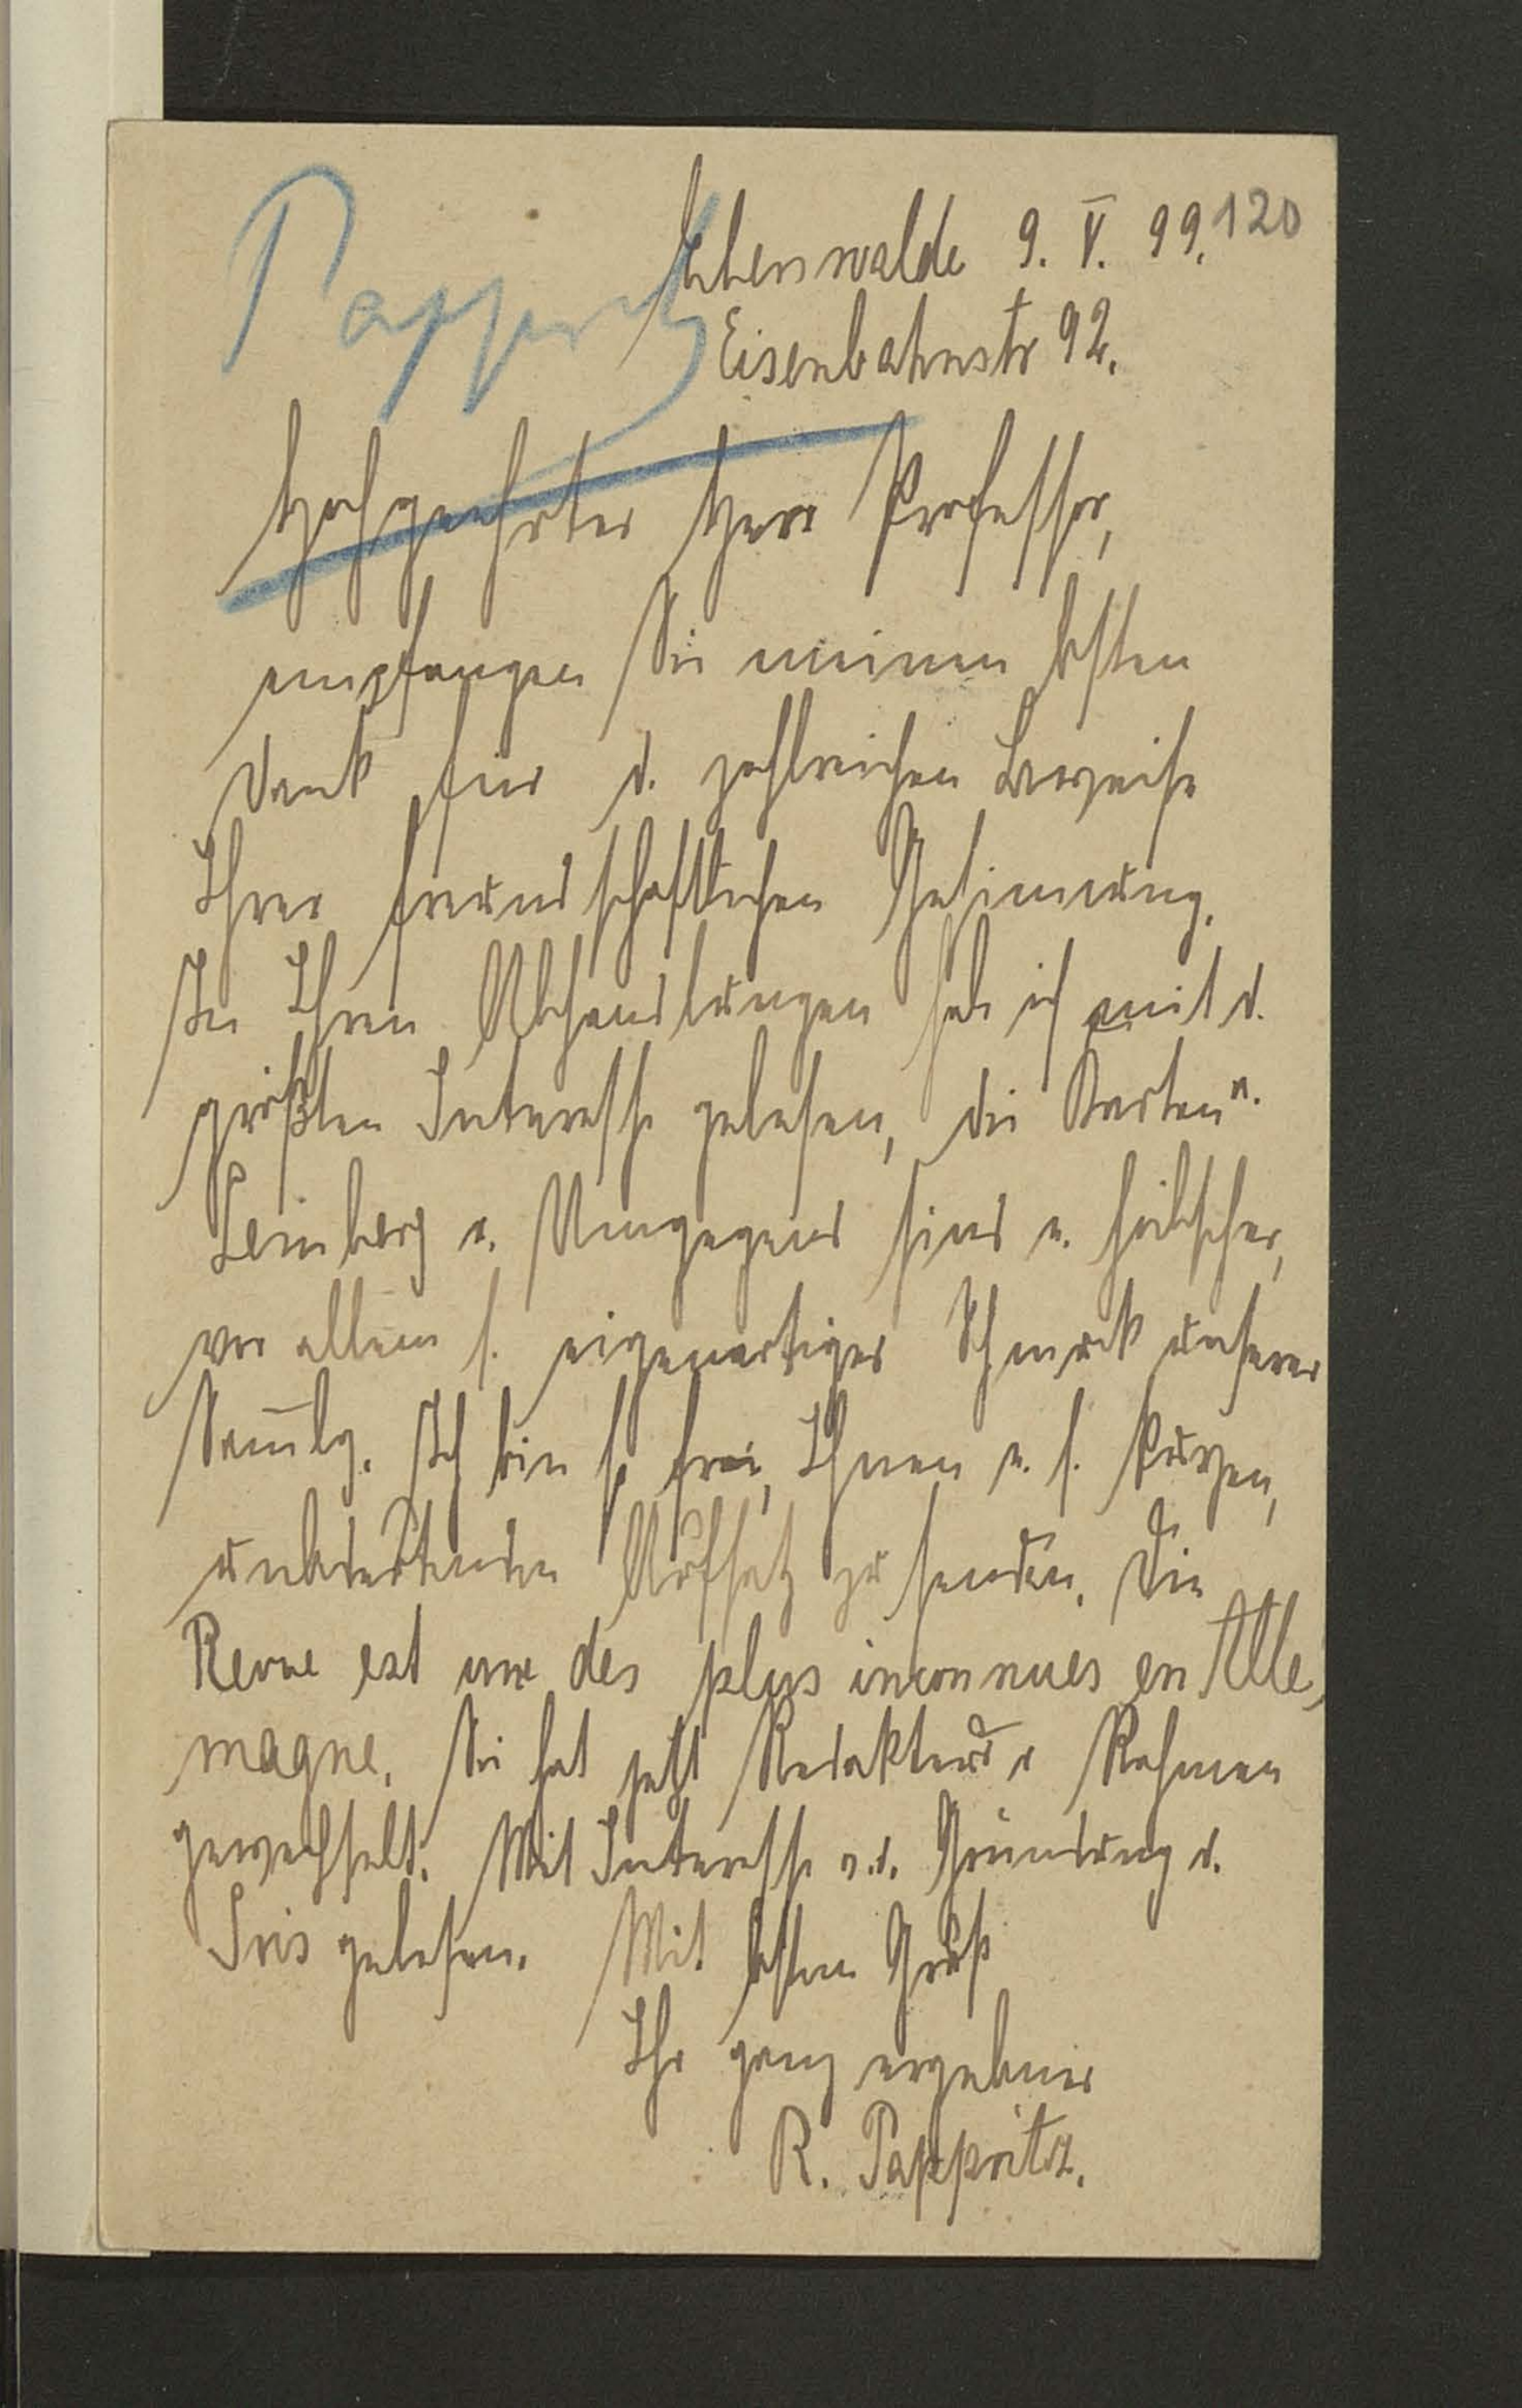 120
Pappritz
Eberswalde 9. V. 99.
Eisenbahnstr 92.
Hochgeehrter Herr Professor,
empfangen Sie meinen besten
Dank für d. zahlreichen Beweise
Ihrer freundschaftlichen Gesinnung.
In Ihren Abhandlungen hab ich mit d.
größten Interesse gelesen, die Karten v.
Lemberg u. Umgegend sind e. hübscher,
vor allem s. eigenartiger Schmuck unserer
Sam̅lg. Ich bin so frei, Ihnen e. s. kurzen,
unbedeutenden Aufsatz zu senden. Die
Revue est une des plus inconnues en Alle,
magne. Sie hat jetzt Redakteur u Rahmen
gewechselt. Mit Interesse v. d. Gründung d.
Iris gelesen. Mit bestem Gruß
Ihr ganz ergebener
R. Pappritz.